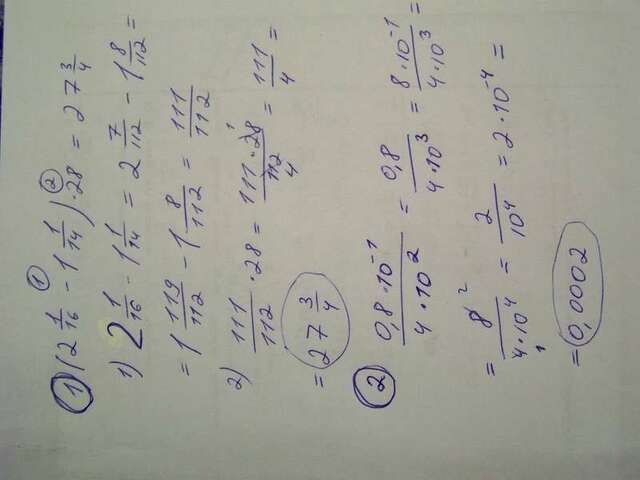 ① (2 1/16 - 1 1/14)·28 = 27 3/4
1) 2 1/16 - 1 1/14 = 2 7/112 - 1 8/112 =
= 1 119/112 - 1 8/112 = 111/112
2) 111/112 · 28 = 111·28/112 = 111/4 =
= 27 3/4
② 0,8·10⁻¹/4·10² = 0,8/4·10³ = 8·10⁻¹/4·10³ =
= 8/4·10⁴ = 2/10⁴ = 2·10⁻⁴ =
= 0,0002